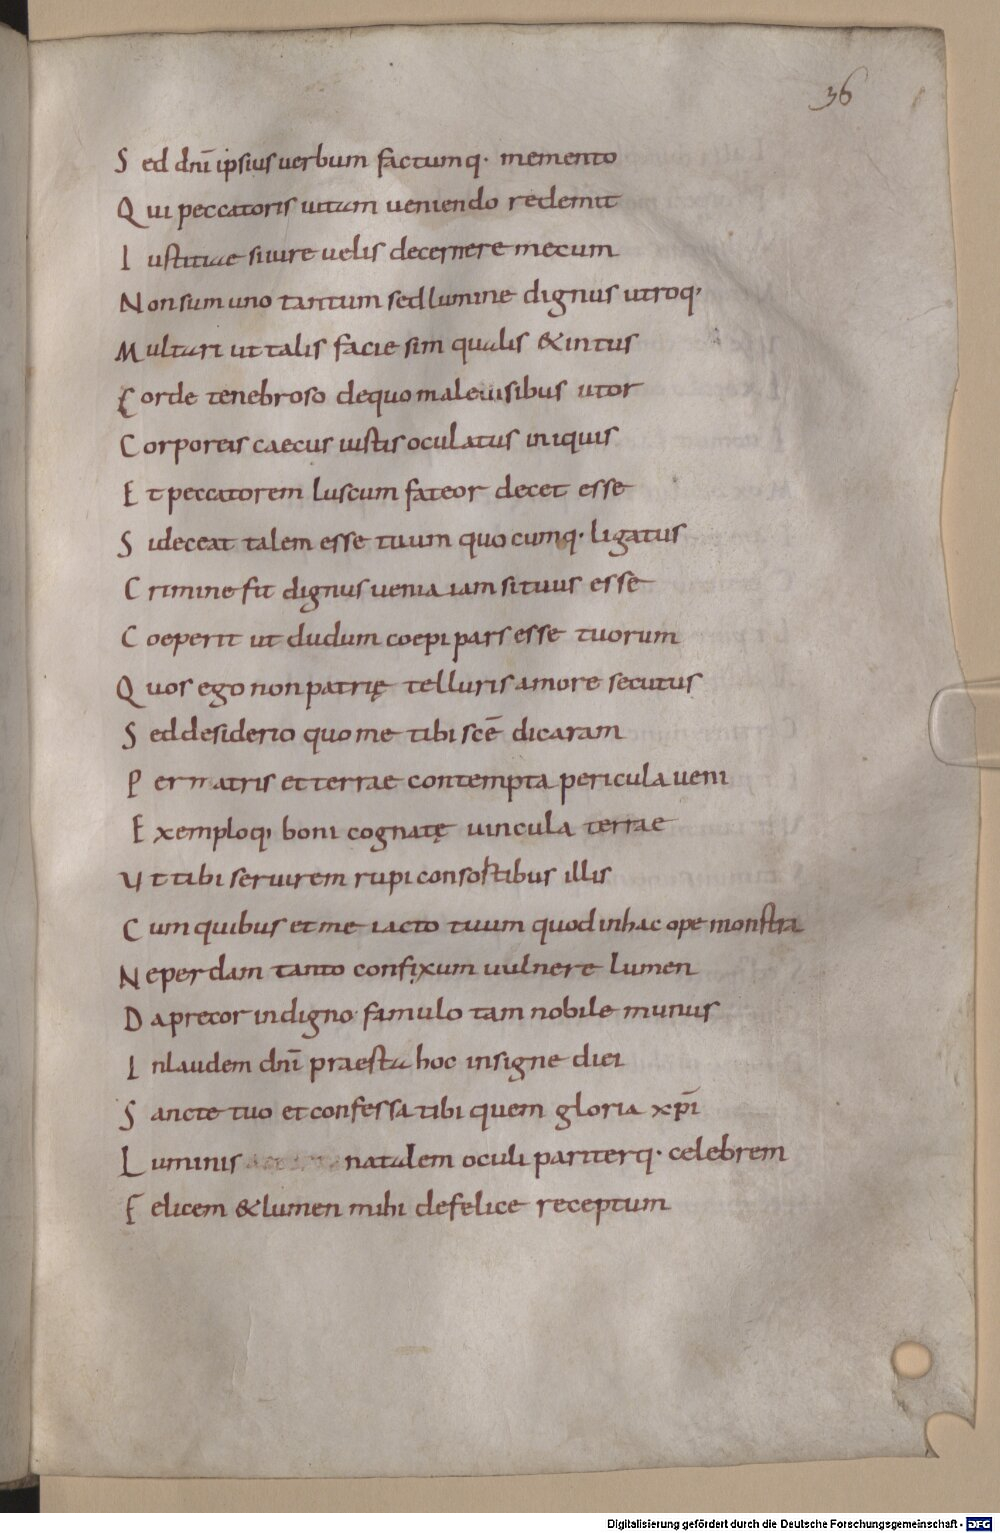 36
S ed dnī ipsius uerbum factumq· memento
Q ui peccatoris uitam ueniendo redemit
I ustitiae si iure uelis decernere mecum
N on sum uno tantum sed lumine dignus utroq·
M ultari ut talis facie sim qualis & intus
C orde tenebroso de quo male uisibus utor
C orporeis caecus iustis oculatus iniquis
E t peccatorem luscum fateor decet esse
S i deceat talem esse tuum quocumq· ligatus
C rimine fit dignus uenia iam si tuus esse
C oeperit ut dudum coepi pars esse tuorum
Q uos ego non patrię telluris amore secutus
S ed desiderio quo me tibi scē dicaram
P er matris et terrae contempta pericula ueni
E xemploq; boni cognatę uincula terrae
U t tibi seruirem rupi consortibus illis
C um quibus et me iacto tuum quod in hac ope monstra
N e perdam tanto confixum uulnere lumen
D a precor indigno famulo tam nobile munus
I n laudem dnī praesta hoc insigne diei
S ancte tuo et confessa tibi quem gloria xpī
L uminis natalem oculi pariterq· celebrem
F elicem & lumen mihi de felice receptum
Digitalisierung gefördert durch die Deutsche Forschungsgemeinschaft - DFG